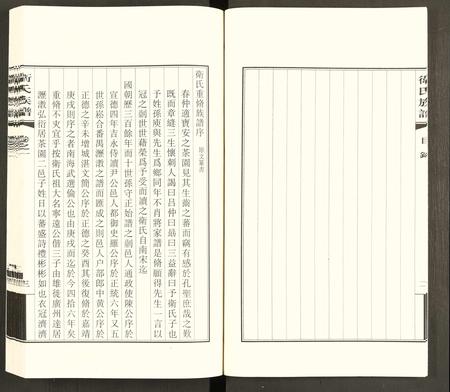 衛氏族譜
目錄
一
衛氏重脩族譜序
原文篆書
春仲適寶安之茶園見其生齒之蕃而竊有感於孔聖庶哉之歎
既而章縫三生懷刺人謁曰呂仲曰最曰三益辭曰予衛氏子也
予姓孫庾與先生爲鄉同年不肖將家譜是脩願得先生一言以
冠之劄世世藉榮爲予受而讀之衛氏自南宋迄
國朝歷三百餘年而十世孫守正始譜之劄邑人通政使陳公序於
宣德四年吉永侍讀尹公邑人都御史羅公序於正統六年又五
世孫崧合番禺瀝滘之譜而匯成之則邑人戶部郎中黃公序於
正德之辛未增城湛文簡公序於正德之癸酉其後復脩於嘉靖
庚戌則序之者南海武選倫公也由庚戌而迄於今四拾六年矣
重脩不夾宜乎按衛氏祖大名寧遠公偕三子由雄徙廣州逵居
瀝滘弘衍居茶園二邑子姓日以蕃盛詩禮彬彬如也衣冠濟濟
衛氏族譜